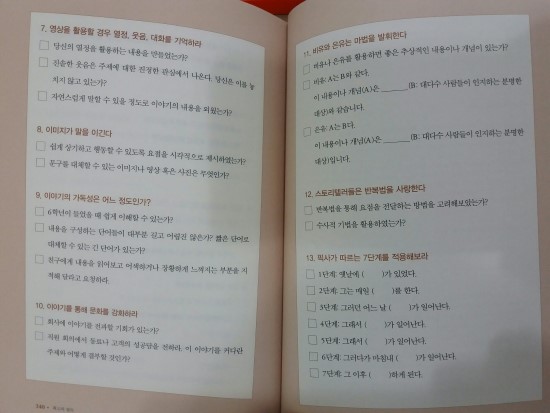 7. 영상을 활용할 경우 열정, 웃음, 대화를 기억하라
당신의 열정을 활용하는 내용을 만들었는가?
진실한 웃음은 주제에 대한 진정한 관심에서 나온다. 당신은 이를 놓
치지 않고 있는가?
자연스럽게 말할 수 있을 정도로 이야기의 내용을 외웠는가?
8. 이미지가 말을 이긴다
쉽게 상기하고 행동할 수 있도록 요점을 시각적으로 제시하였는가?
문구를 대체할 수 있는 이미지나 영상 혹은 사진은 무엇인가?
9. 이야기의 가독성은 어느 정도인가?
6학년이 들었을 때 쉽게 이해할 수 있는가?
내용을 구성하는 단어들이 대부분 길고 어렵진 않은가? 짧은 단어로
대체할 수 있는 긴 단어가 있는가?
친구에게 내용을 읽어보고 어색하거나 장황하게 느껴지는 부분을 지
적해 달라고 요청하라.
10. 이야기를 통해 문화를 강화하라
회사에 이야기를 전파할 기회가 있는가?
직원 회의에서 동료나 고객의 성공담을 전하라. 이 이야기를 커다란
주제와 어떻게 결부할 것인가?
11. 비유와 은유는 마법을 발휘한다
비유나 은유를 활용하면 좋은 추상적인 내용이나 개념이 있는가?
비유: A는 B와 같다.
이 내용이나 개념(A)은 ______(B: 대다수 사람들이 인지하는 분명한
대상)와 같습니다.
은유: A는 B다.
이 내용이나 개념(A)은 ______(B: 대다수 사람들이 인지하는 분명한
대상)입니다.
12. 스토리텔러들은 반복법을 사랑한다
반복법을 통해 요점을 전달하는 방법을 고려해보았는가?
수사적 기법을 활용하였는가?
13. 픽사가 따르는 7단계를 적용해보라
1단계: 옛날에 ( )가 있었다.
2단계: 그는 매일 ( )를 한다.
3단계: 그러던 어느 날 ( )가 일어난다.
4단계: 그래서 ( )가 일어난다.
5단계: 그래서 ( )가 일어난다.
6단계: 그러다가 마침내 ( )가 일어난다.
7단계: 그 이후 ( )하게 된다.